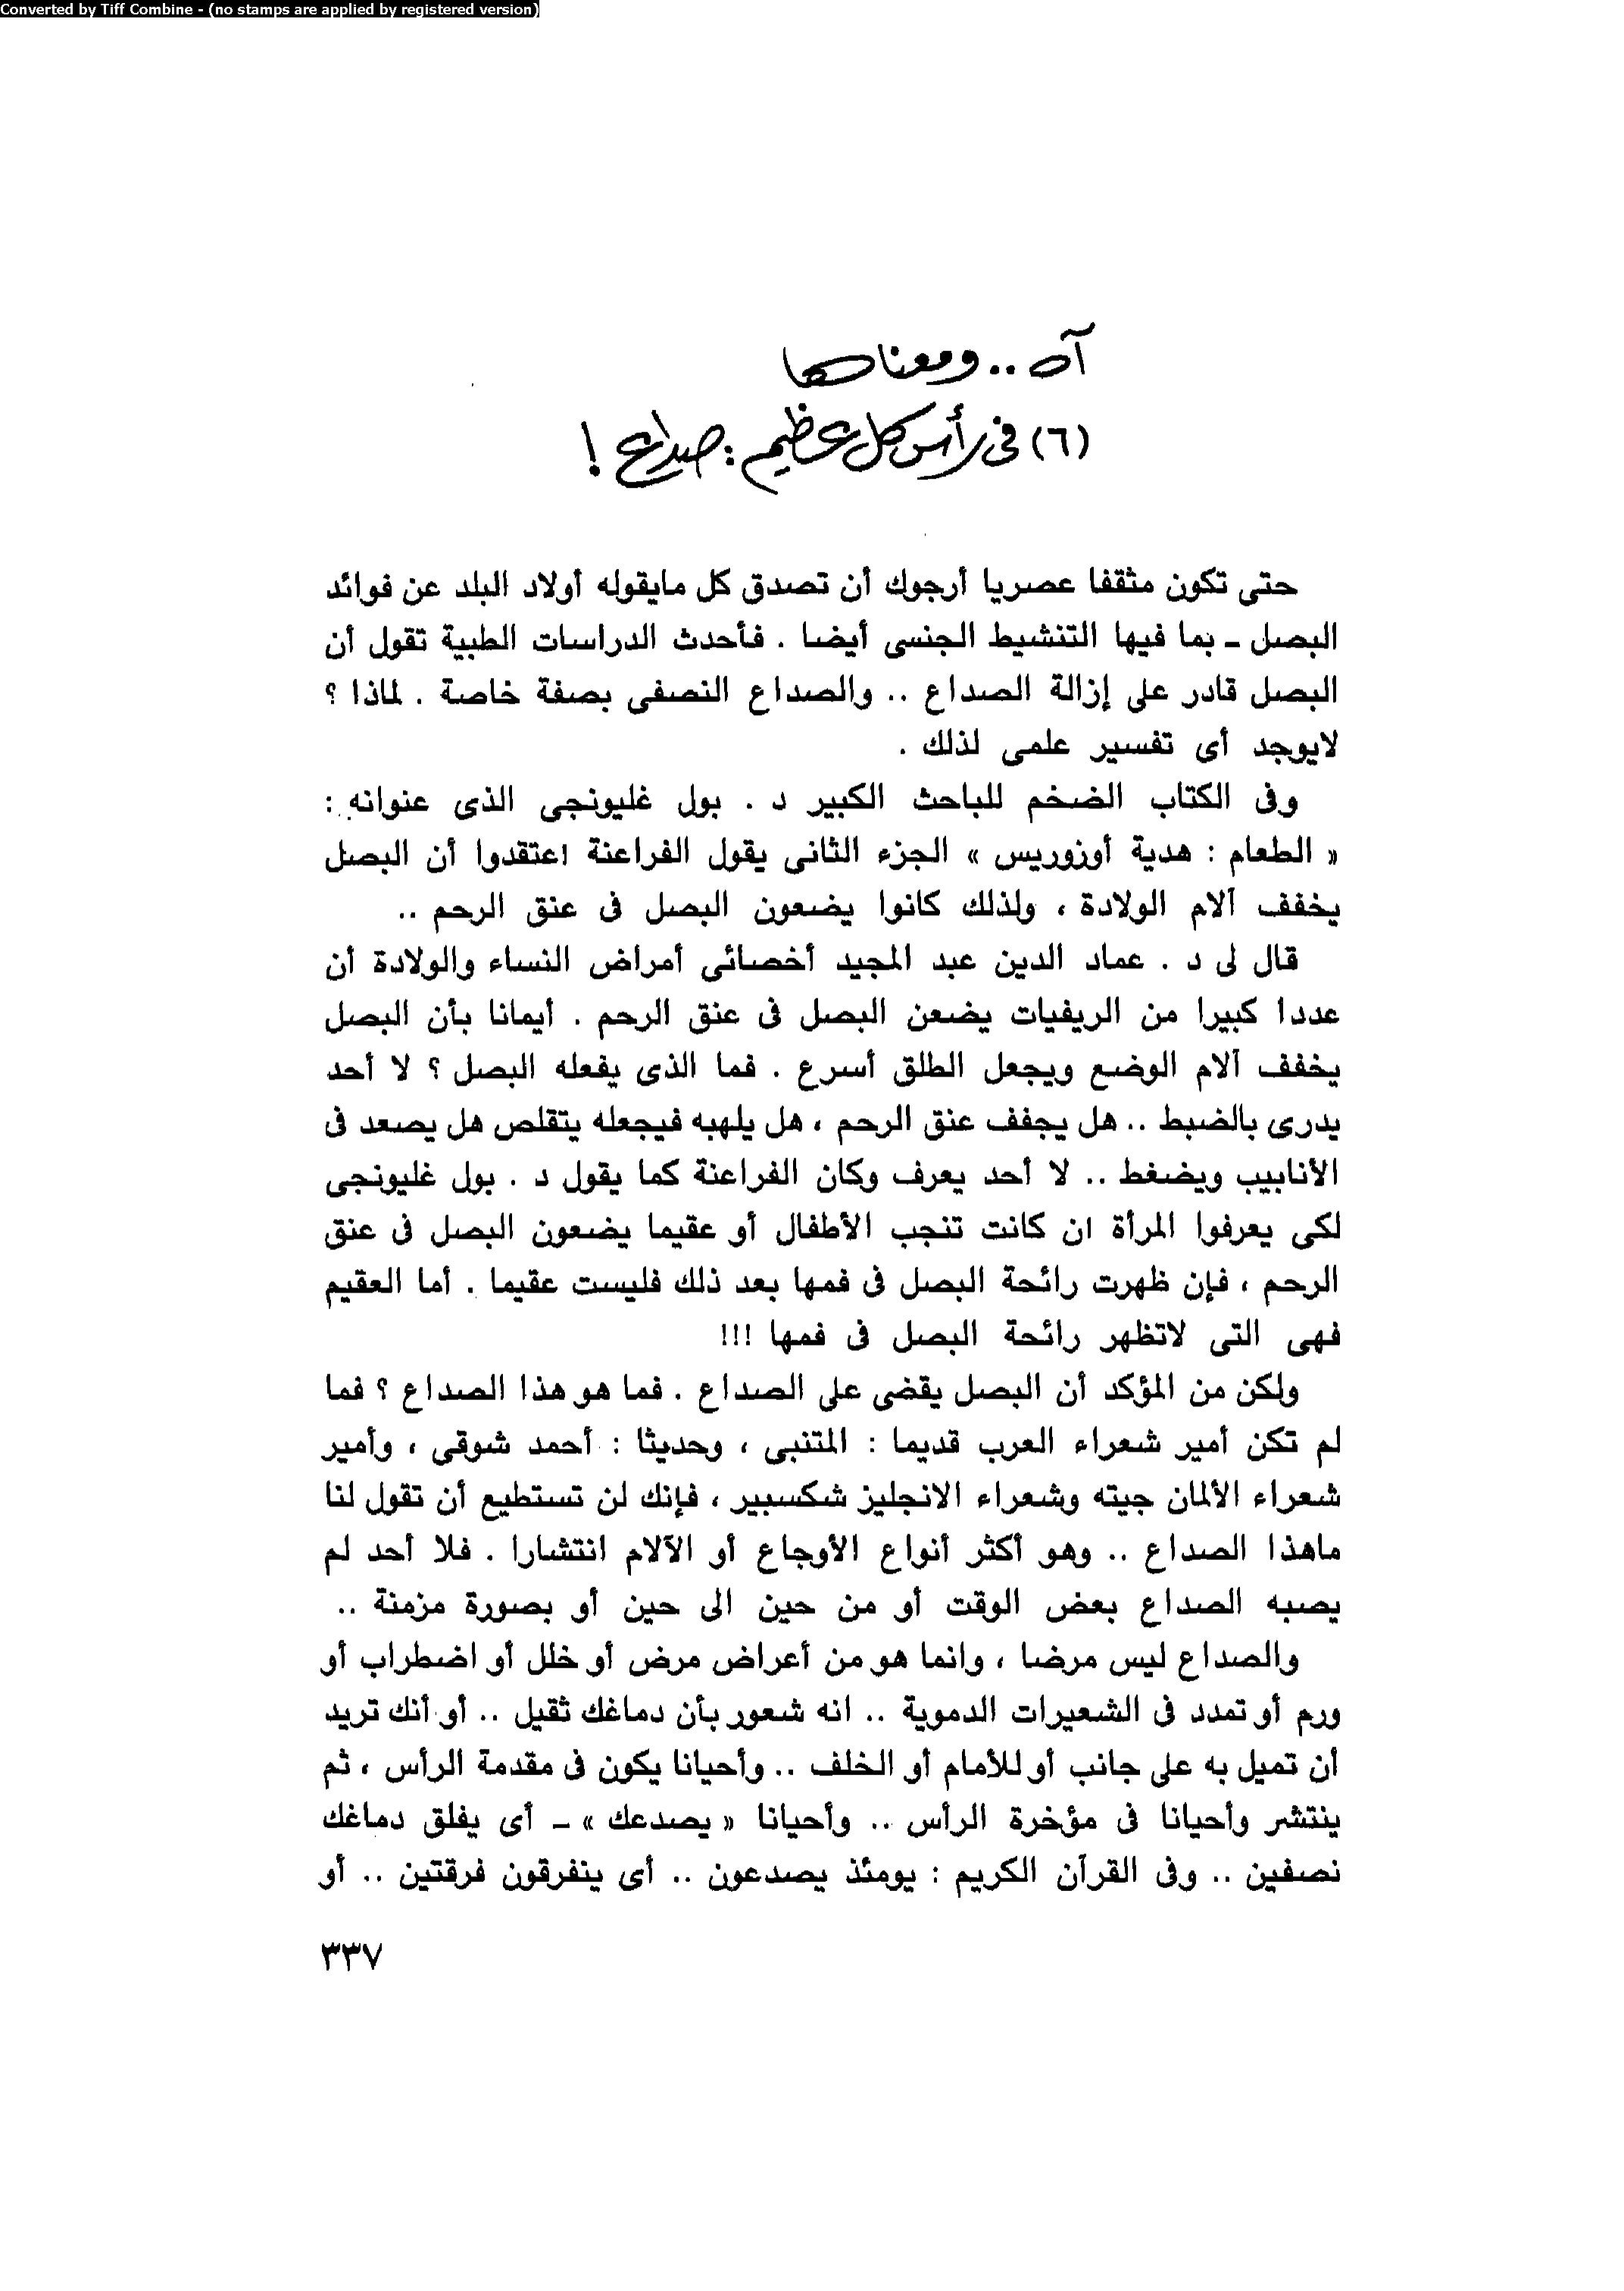 Converted by Tiff Combine - (no stamps are applied by registered version)
آه .. ومعناها
(٦) فى رأس كل عظيم : صداع !
حتى تكون مثقفا عصريا أرجوك أن تصدق كل مايقوله أولاد البلد عن فوائد
البصل ـ بما فيها التنشيط الجنسى أيضا . فأحدث الدراسات الطبية تقول أن
البصل قادر على إزالة الصداع .. والصداع النصفى بصفة خاصة . لماذا ؟
لايوجد أى تفسير علمى لذلك .
وفى الكتاب الضخم للباحث الكبير د . بول غليونجى الذى عنوانه :
« الطعام : هدية أوزوريس » الجزء الثانى يقول الفراعنة اعتقدوا أن البصل
يخفف آلام الولادة ، ولذلك كانوا يضعون البصل فى عنق الرحم ..
قال لى د . عماد الدين عبد المجيد أخصائى أمراض النساء والولادة أن
عددا كبيرا من الريفيات يضعن البصل فى عنق الرحم . أيمانا بأن البصل
يخفف آلام الوضع ويجعل الطلق أسرع . فما الذى يفعله البصل ؟ لا أحد
يدرى بالضبط .. هل يجفف عنق الرحم ، هل يلهبه فيجعله يتقلص هل يصعد فى
الأنابيب ويضغط .. لا أحد يعرف وكان الفراعنة كما يقول د . بول غليونجى
لكى يعرفوا المرأة ان كانت تنجب الأطفال أو عقيما يضعون البصل فى عنق
الرحم ، فإن ظهرت رائحة البصل فى فمها بعد ذلك فليست عقيما . أما العقيم
فهى التى لاتظهر رائحة البصل فى فمها !!!
ولكن من المؤكد أن البصل يقضى على الصداع . فما هو هذا الصداع ؟ فما
لم تكن أمير شعراء العرب قديما : المتنبى ، وحديثا : أحمد شوقى ، وأمير
شعراء الألمان جيته وشعراء الانجليز شكسبير ، فإنك لن تستطيع أن تقول لنا
ماهذا الصداع .. وهو أكثر أنواع الأوجاع أو الآلام انتشارا . فلا أحد لم
يصبه الصداع بعض الوقت أو من حين الى حين أو بصورة مزمنة ..
والصداع ليس مرضا ، وانما هو من أعراض مرض أو خلل أو اضطراب أو
ورم أو تمدد فى الشعيرات الدموية .. انه شعور بأن دماغك ثقيل .. أو أنك تريد
أن تميل به على جانب أو للأمام أو الخلف .. وأحيانا يكون فى مقدمة الرأس ، ثم
ينتشر وأحيانا فى مؤخرة الرأس .. وأحيانا « يصدعك » ـ أى يفلق دماغك
نصفين .. وفى القرآن الكريم : يومئذ يصدعون .. أى ينفرقون فرقتين .. أو
٣٣٧